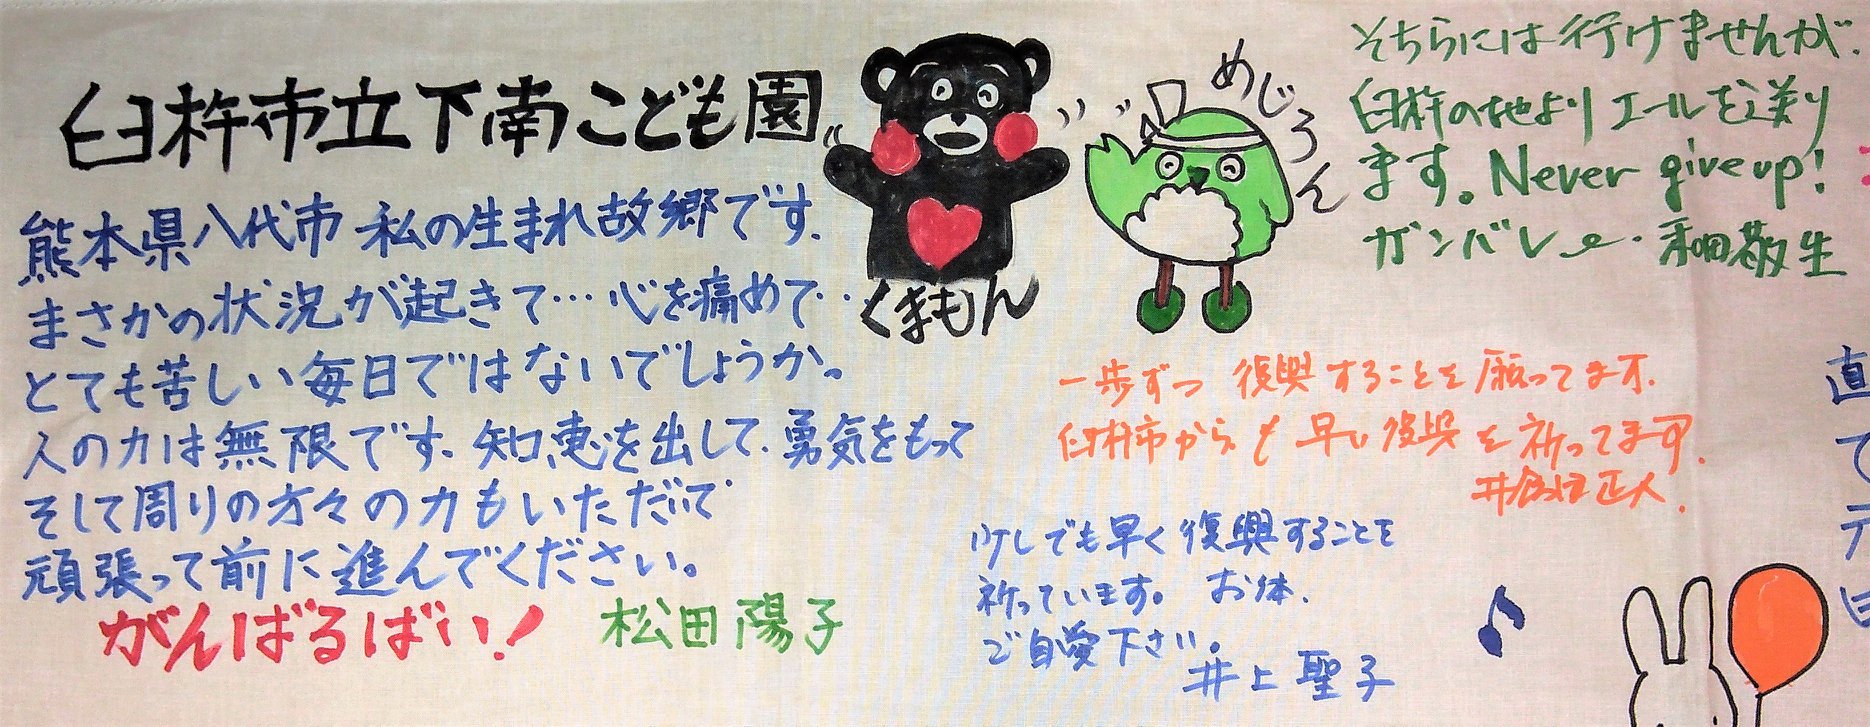 臼杵市立下南こども園
熊本県八代市 私の生まれ故郷です、
まさかの状況が起きて…心を痛めて…
とても苦しい毎日ではないでしょうか。
人の力は無限です、知恵を出して、勇気をもって
そして周りの方々の力もいただいて
頑張って前に進んでください。
がんばるばい!
松田陽子
くまもん
めじろん
そちらには行けませんが、
臼杵の地よりエールを送り
ます。Never give up!
ガンバレ
一歩ずつ 復興することを願ってます、
臼杵市からも早い復興を祈ってます。
正人
少しでも早く復興することを
祈っています。 お体、
ご自愛下さい。
井上聖子
直
て
元